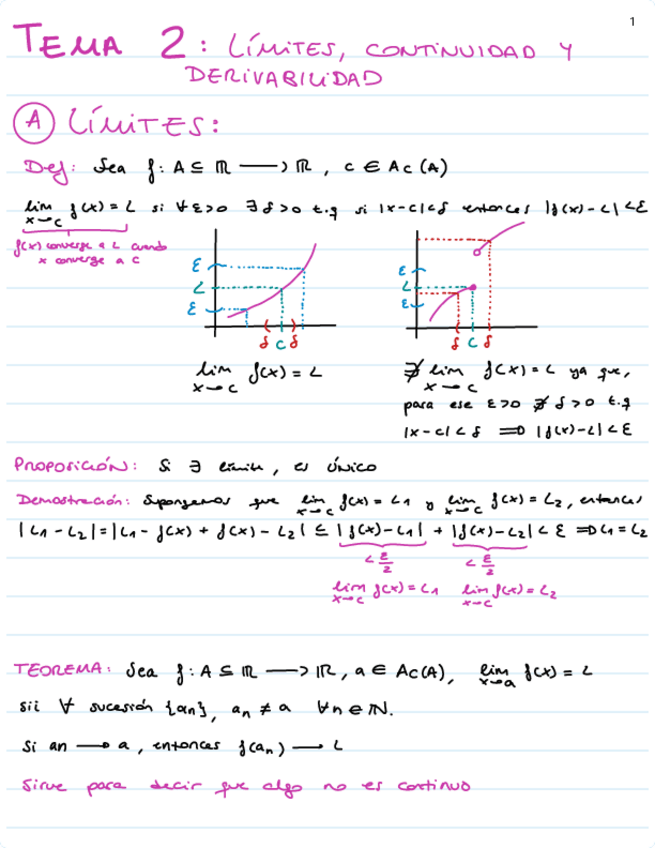 1
TEMA 2: LÍMITES, CONTINUIDAD Y
DERIVABILIDAD
A LÍMITES:
Def: Sea f: A ⊆ ℝ ⟶ ℝ, c ∈ Ac(A)
lim f(x) = L si ∀ε>0 ∃δ>0 t.q si |x-c|<δ entonces |f(x)-L|<ε
x→c
f(x) converge a L cuando
x converge a C
ε
L
ε
δ c δ
lim f(x) = L
x→c
ε
L
ε
δ c δ
∄ lim f(x) = L ya que,
x→c
para ese ε>0 ∄ δ>0 t.q
|x-c|<δ ⟹ |f(x)-L|<ε
PROPOSICIÓN: Si ∃ límite, es único
Demostración: Supongamos que lim f(x) = L1 y lim f(x) = L2, entonces
x→c x→c
|L1-L2|=|L1-f(x)+f(x)-L2| ≤ |f(x)-L1| + |f(x)-L2| < ε ⟹ L1=L2
< ε/2 < ε/2
lim f(x) = L1 lim f(x) = L2
x→c x→c
TEOREMA: Sea f: A ⊆ ℝ ⟶ ℝ, a ∈ Ac(A), lim f(x) = L
x→a
sii ∀ sucesión {an}, an ≠ a ∀n ∈ ℕ.
Si an ⟶ a, entonces f(an) ⟶ L
Sirve para decir que algo no es continuo